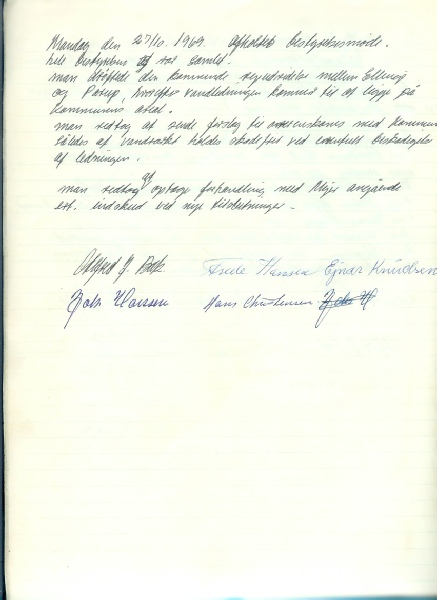 Mandag den 27/10. 1969. Afholdtes bestyrelsesmøde.
hele bestyrelsen var samlet.
man drøftede den kommende vejudvidelse mellem Elling
og hvorefter vandledningen kommer til at ligge på
kommunens areal.
man vedtog at sende forslag til overenskomst med kommunen
således at vandværket holdes skadefri ved eventuelt beskadigelse
af ledningen.
man vedtog at optage forhandling med angående
evt. indskud ved nye tilslutninger.
Bak Frede Hansen Ejnar Knudsen
Hansen Hans Christensen